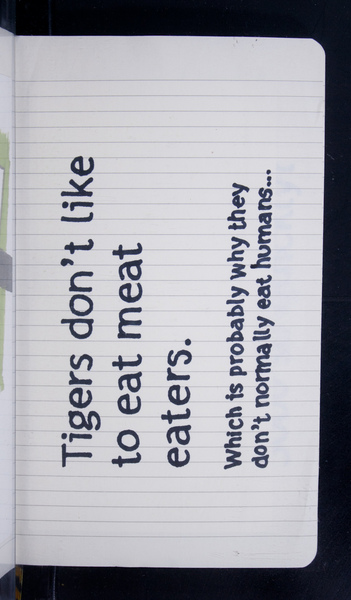 Tigers don't like
to eat meat
eaters.
Which is probably why they
don't normally eat humans...